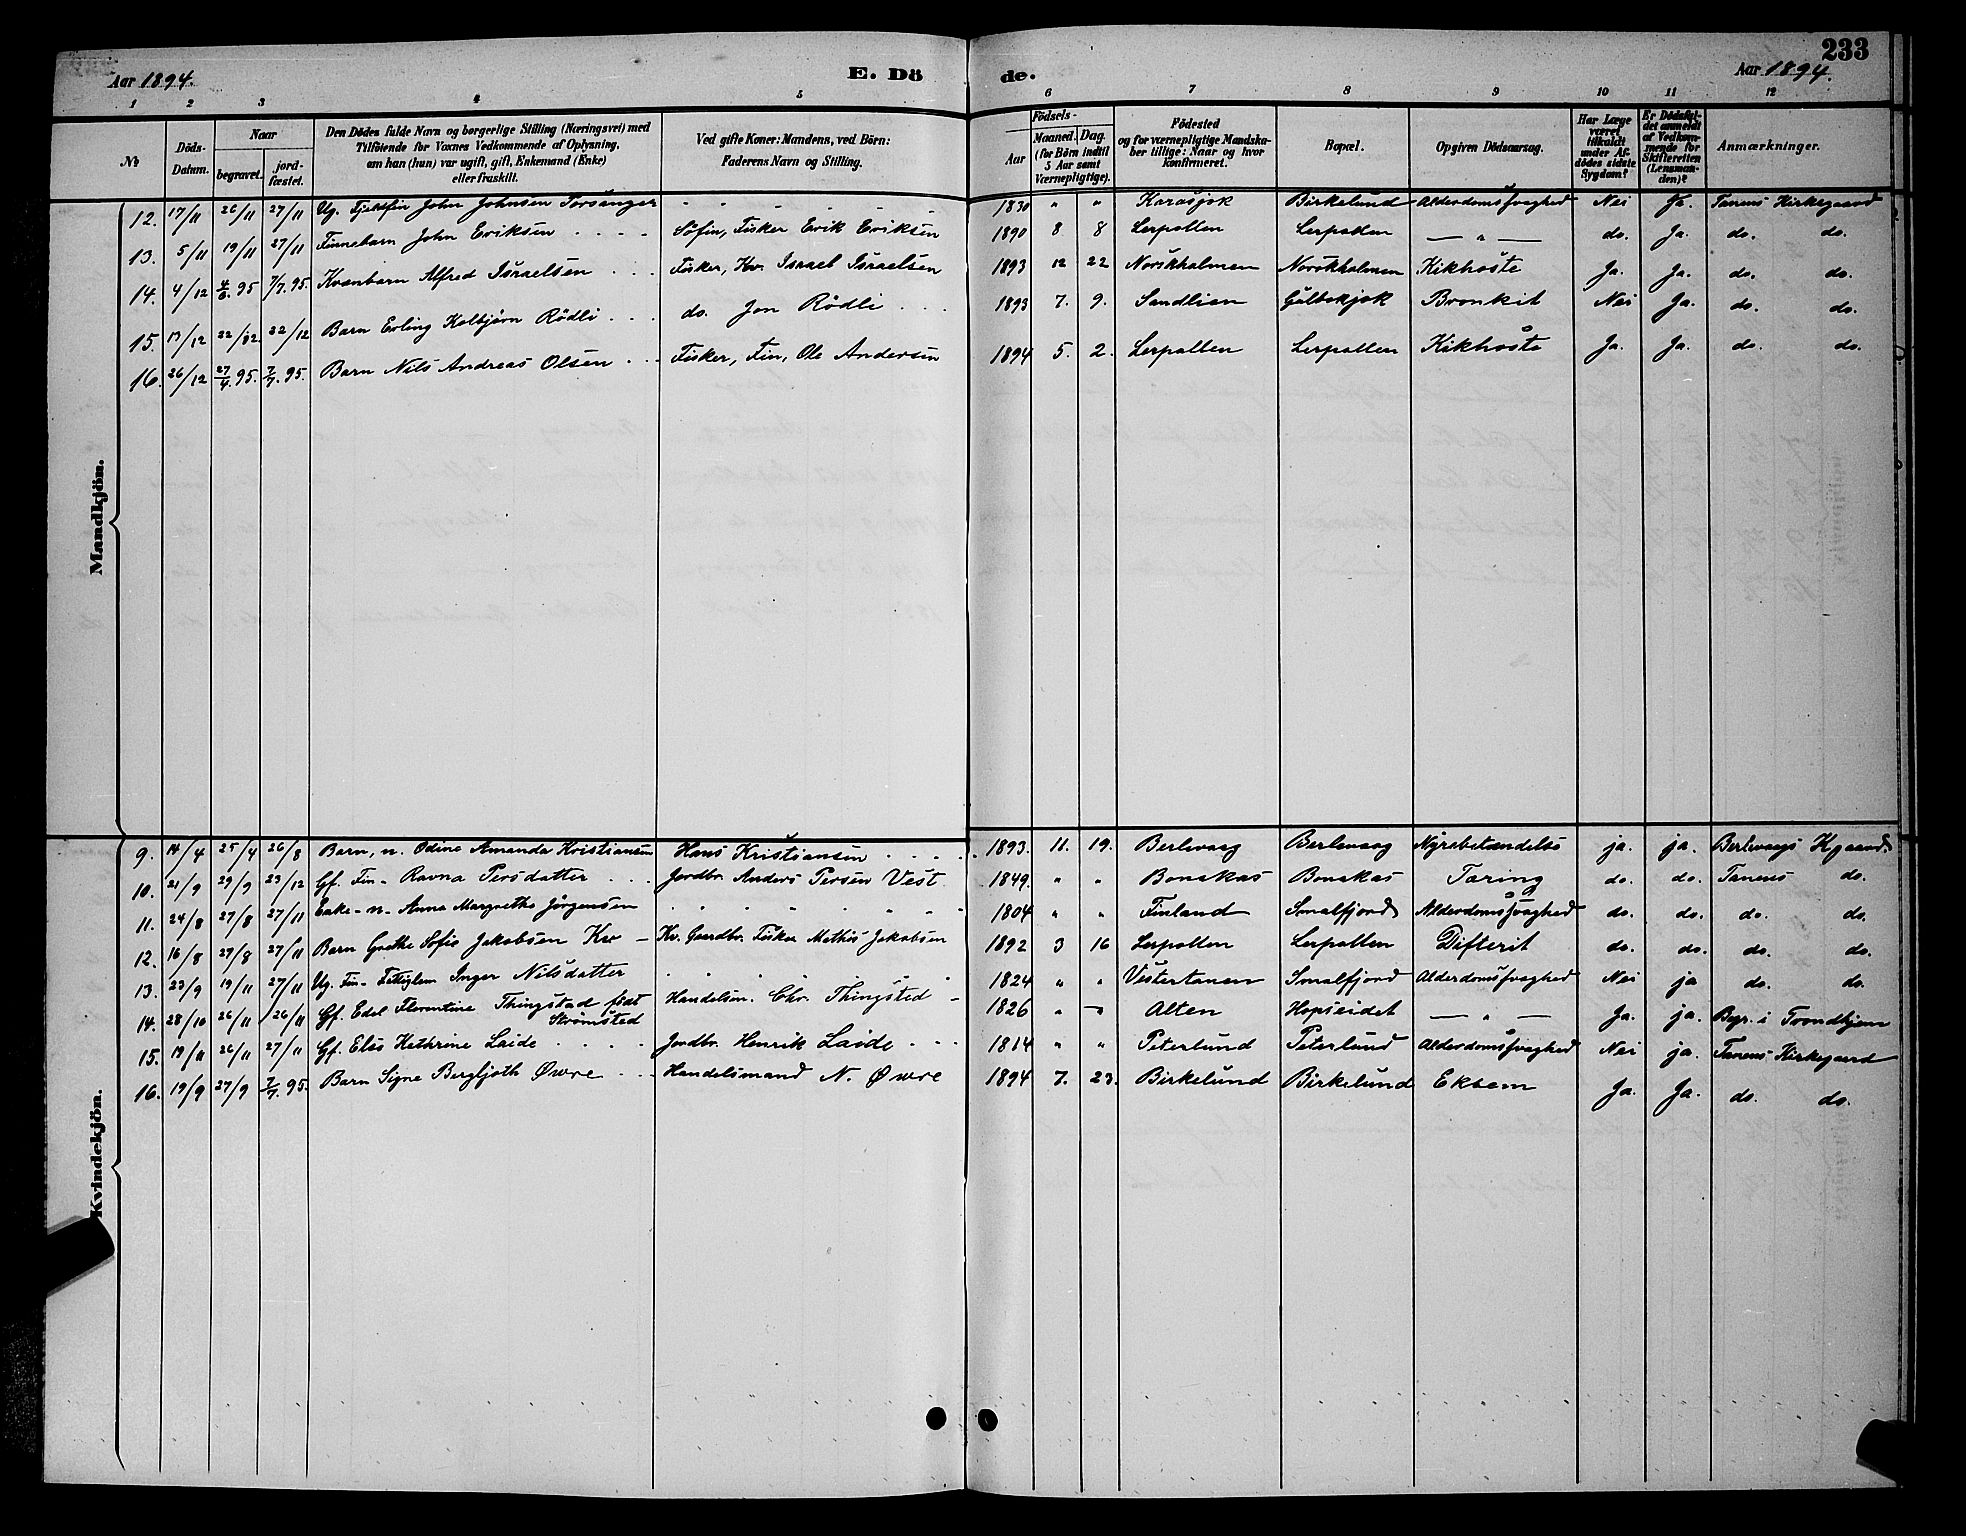 233
Aar 1894. E. Dö de. Aar 1894.
1 2 3 4 5 6 7 8 9 10 11 12
No
Döds-Datum.
Naar
begravet.
jord-fæstet.
Den Dödes fulde Navn og borgerlige Stilling (Næringsvei) med
Tilföiende for Voxnes Vedkommende af Oplysning,
om han (hun) var ugift, gift, Enkemand (Enke)
eller fraskilt.
Ved gifte Koner: Mandens, ved Börn:
Faderens Navn og Stilling.
Födsels-
Aar
Maaned. Dag.
(for Börn indtil
5 Aar samt
Værnepligtige).
Födested
og for værnepligtige Mandska-
ber tillige: Naar og hvor
konfirmeret.
Bopæl.
Opgiven Dödsaarsag.
Har Læge
været
tilkaldt
under Af-
dödes sidste
Sygdom?
Er Dödsfal-
det anmeldt
af Vedkom-
mende for
Skifteretten
(Lensman-
den)?
Anmærkninger.
Mandkjön.
12. 17/11 26/11 27/11 Ug. Fjeldfin John Johnsen Porsanger " " " " " 1830 " " Karasjok Birkelund Alderdomssvaghed Nei Ja. Tanens Kirkegaard
13. 5/11 19/11 27/11 Finnebarn John Eriksen Söfin, Fisker Erik Eriksen 1890 8 8 Lerpollen Lerpollen — " — do. Ja. do. do.
14. 4/12 4/6 95 7/7. 95. Kvænbarn Alfred Israelsen Fisker, Kv. Israel Israelsen 1893 12 22 Norskholmen Norskholmen Kikhoste Ja. Ja. do. do.
15. 13/12 22/12. 22/12 Barn Erling Kolbjörn Rödli do. Jon Rödli 1893 7. 9. Sandlien Gulbokjok Bronkit Nei Ja. do. do.
16. 26/12 27/4. 95. 7/7. 95. Barn Nils Andreas Olsen Fisker, Fin, Ole Andersen 1894 5. 2. Lerpollen Lerpollen Kikhoste Ja. Ja. do. do.
Kvindekjön.
9. 14/4 25/4 26/8 Barn, n. Odine Amanda Kristiansen Hans Kristiansen 1893. 11. 19. Berlevaag Berlevaag Nyrebetændelse ja. ja. Berlevaags Kgaard.
10. 21/9 29/9 23/12 Gf. Fin- Ravna Persdatter Jordbr. Anders Persen Vest. 1849. " " Bonakas Bonakas Tæring do. do. Tanens do.
11. 24/8 27/8 27/11 Enke-n- Anna Margrethe Jørgensen " " " " " 1804 " " Finland Smalfjord Alderdomssvaghed do. do. do. do.
12. 16/8 27/8 27/11 Barn Grethe Sofie Jakobsen Kv — Kv. Gaardbr. Fisker Mathis Jakobsen 1892 3 16 Lerpollen Lerpollen Difterit do. do. do. do.
13. 23/9 19/11 27/11 Ug. Fin- Fattiglem Inger Nilsdatter " " " " " 1824 " " Vestertanen Smalfjord Alderdomssvaghed Nei ja do. do.
14. 28/10 26/11 26/11 Gf. Edel Florentine Thingstad födt Strømsted Handelsm. Chr. Thingsted — 1826 " " Alten Hopseidet — " — Ja. ja. Begr. i Trondhjem
15. 19/11 26/11 27/11 Gf. Else Kathrine Laide Jordbr. Henrik Laide 1814 " " Peterlund Peterlund Alderdomssvaghed Nei ja. Tanens Kirkegaard
16. 19/9 27/9 7/7. 95. Barn Signe Bergljoth Øvre Handelsmand N. Øvre 1894 7. 23. Birkelund Birkelund Eksem Ja. Ja. do. do.